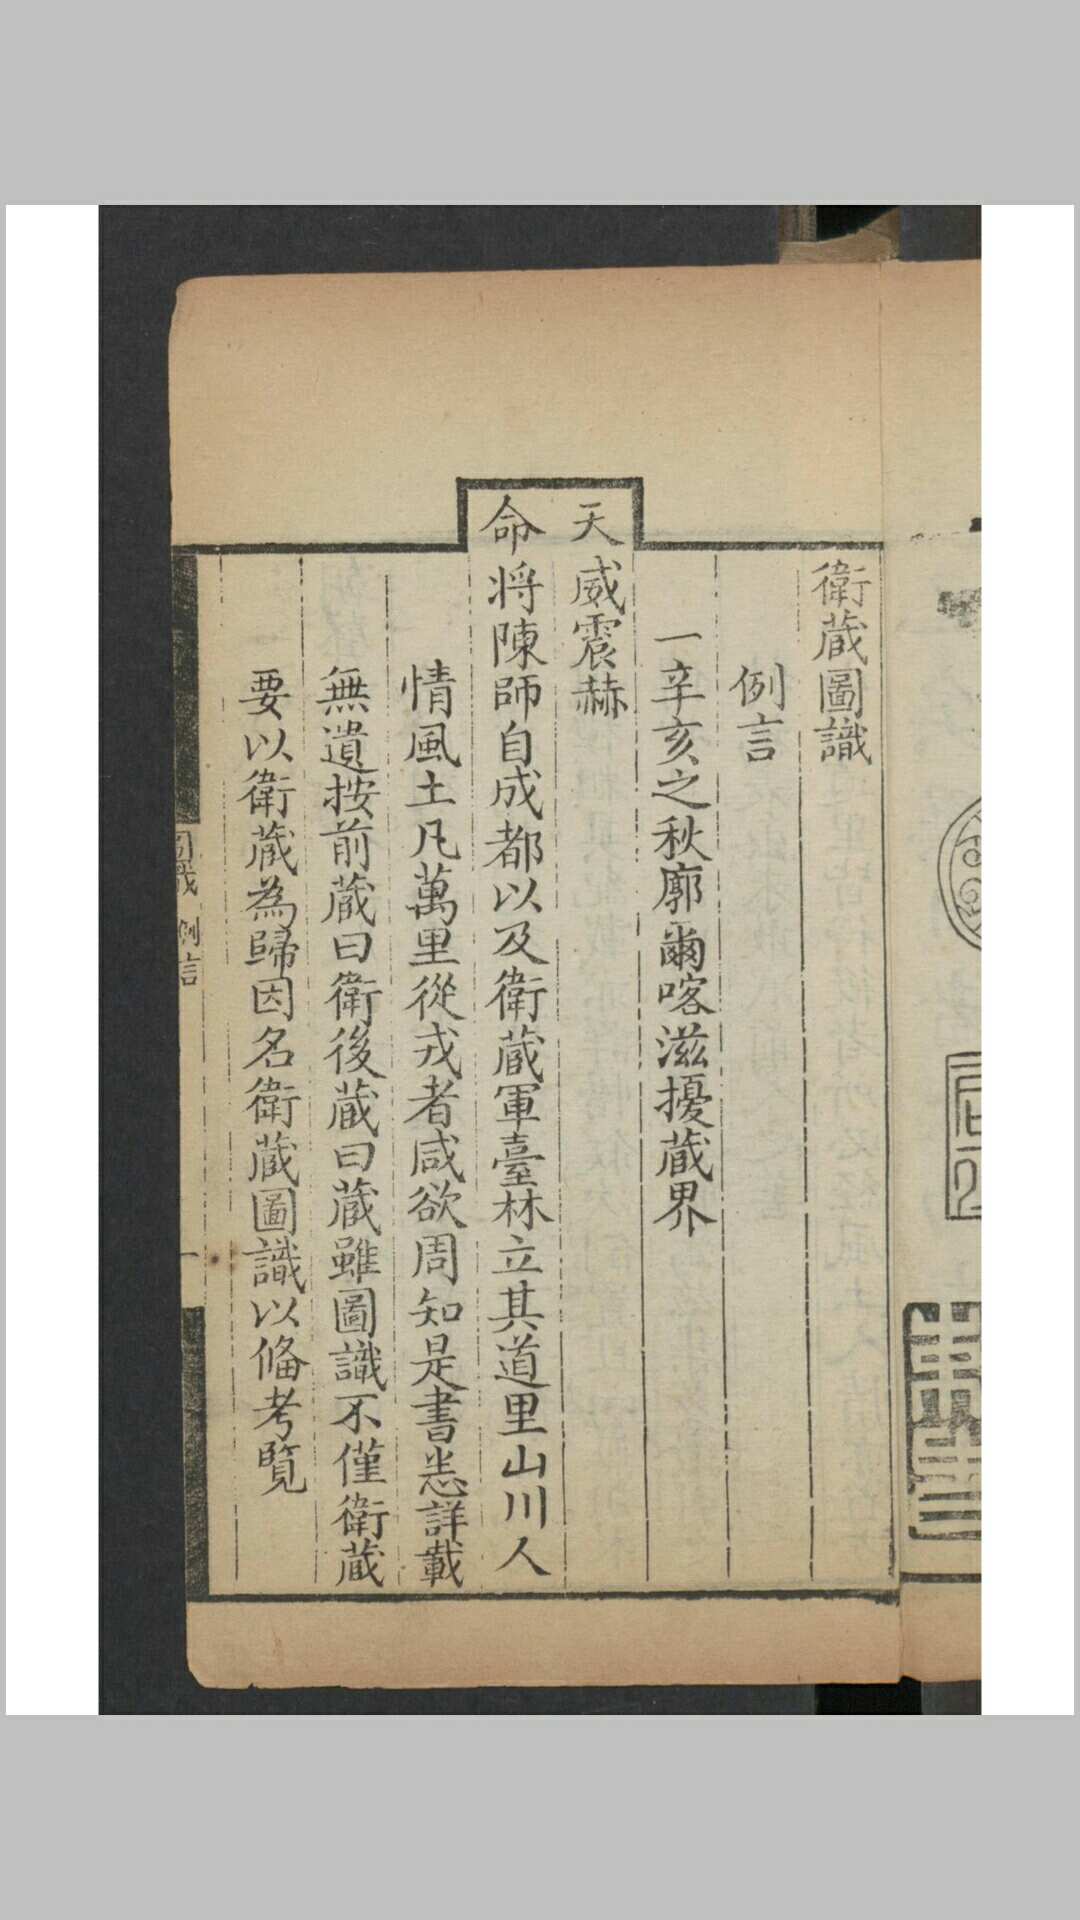 衛蔵圖識
例言
一辛亥之秋廓爾喀滋擾蔵界
天威震赫
命將陳師自成都以及衛蔵軍臺林立其道里山川人
情風土凡萬里從戎者咸欲周知是書悉詳載
無遺按前蔵曰衛後蔵曰蔵雖圖識不僅衛蔵
要以衛蔵為歸因名衛蔵圖識以備考覧
例言
一